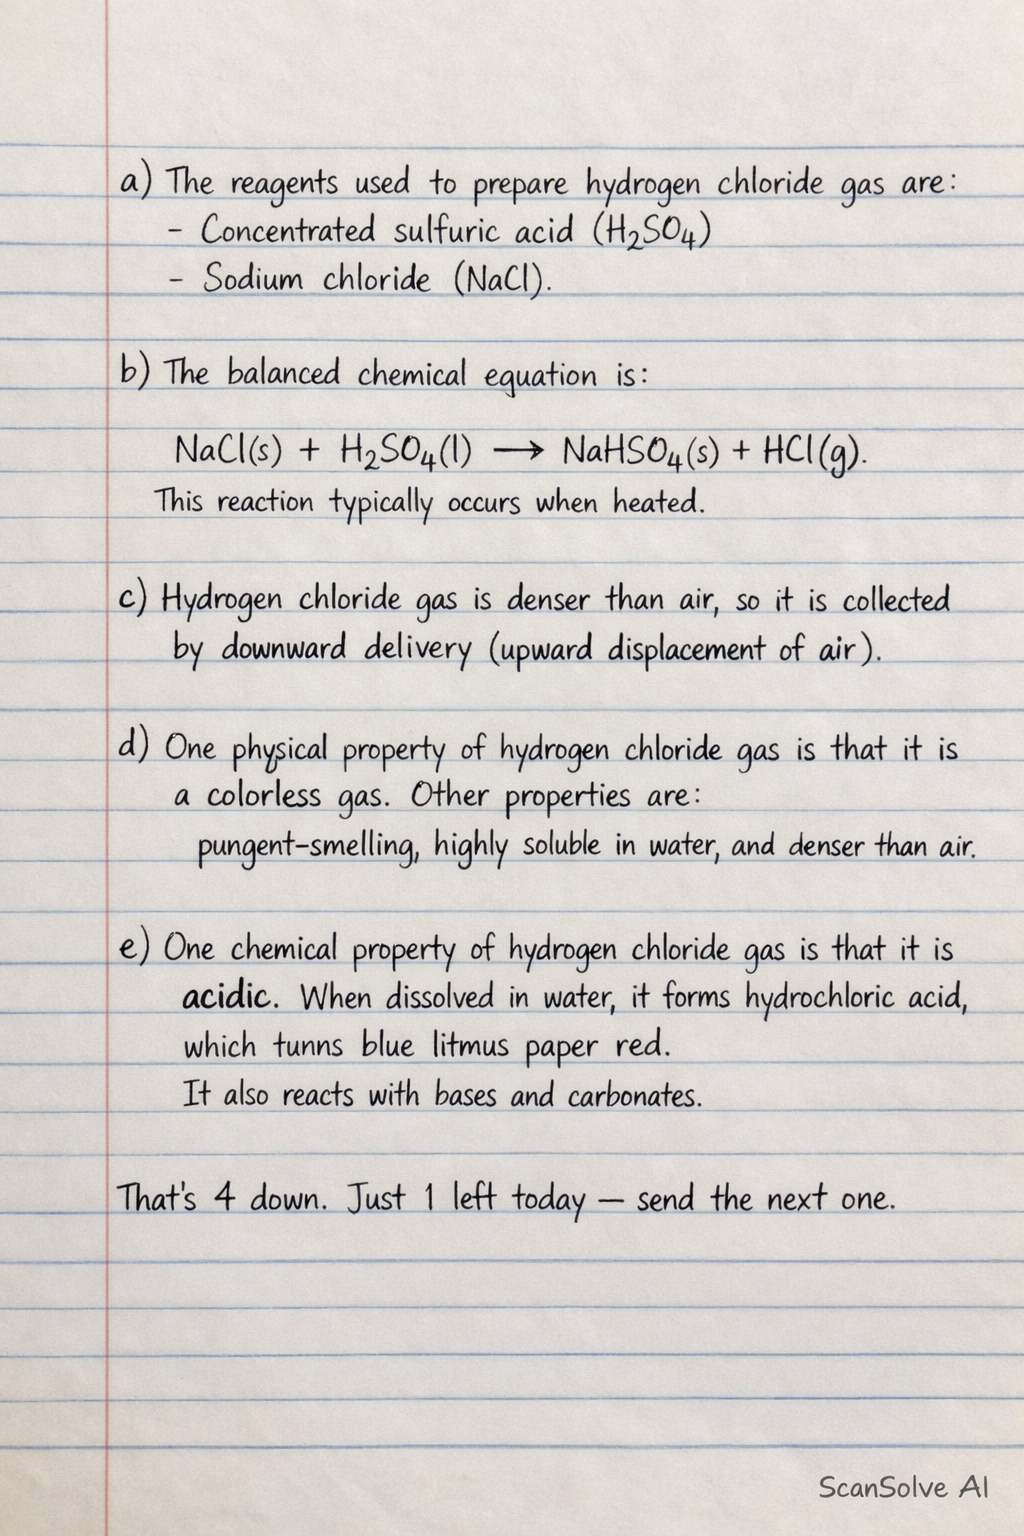 a) The reagents used to prepare hydrogen chloride gas are:
- Concentrated sulfuric acid (H₂SO₄)
- Sodium chloride (NaCl).
b) The balanced chemical equation is:
NaCl(s) + H₂SO₄(l) ⟶ NaHSO₄(s) + HCl(g).
This reaction typically occurs when heated.
c) Hydrogen chloride gas is denser than air, so it is collected
by downward delivery (upward displacement of air).
d) One physical property of hydrogen chloride gas is that it is
a colorless gas. Other properties are:
pungent-smelling, highly soluble in water, and denser than air.
e) One chemical property of hydrogen chloride gas is that it is
acidic. When dissolved in water, it forms hydrochloric acid,
which tunns blue litmus paper red.
It also reacts with bases and carbonates.
That's 4 down. Just 1 left today — send the next one.
ScanSolve AI